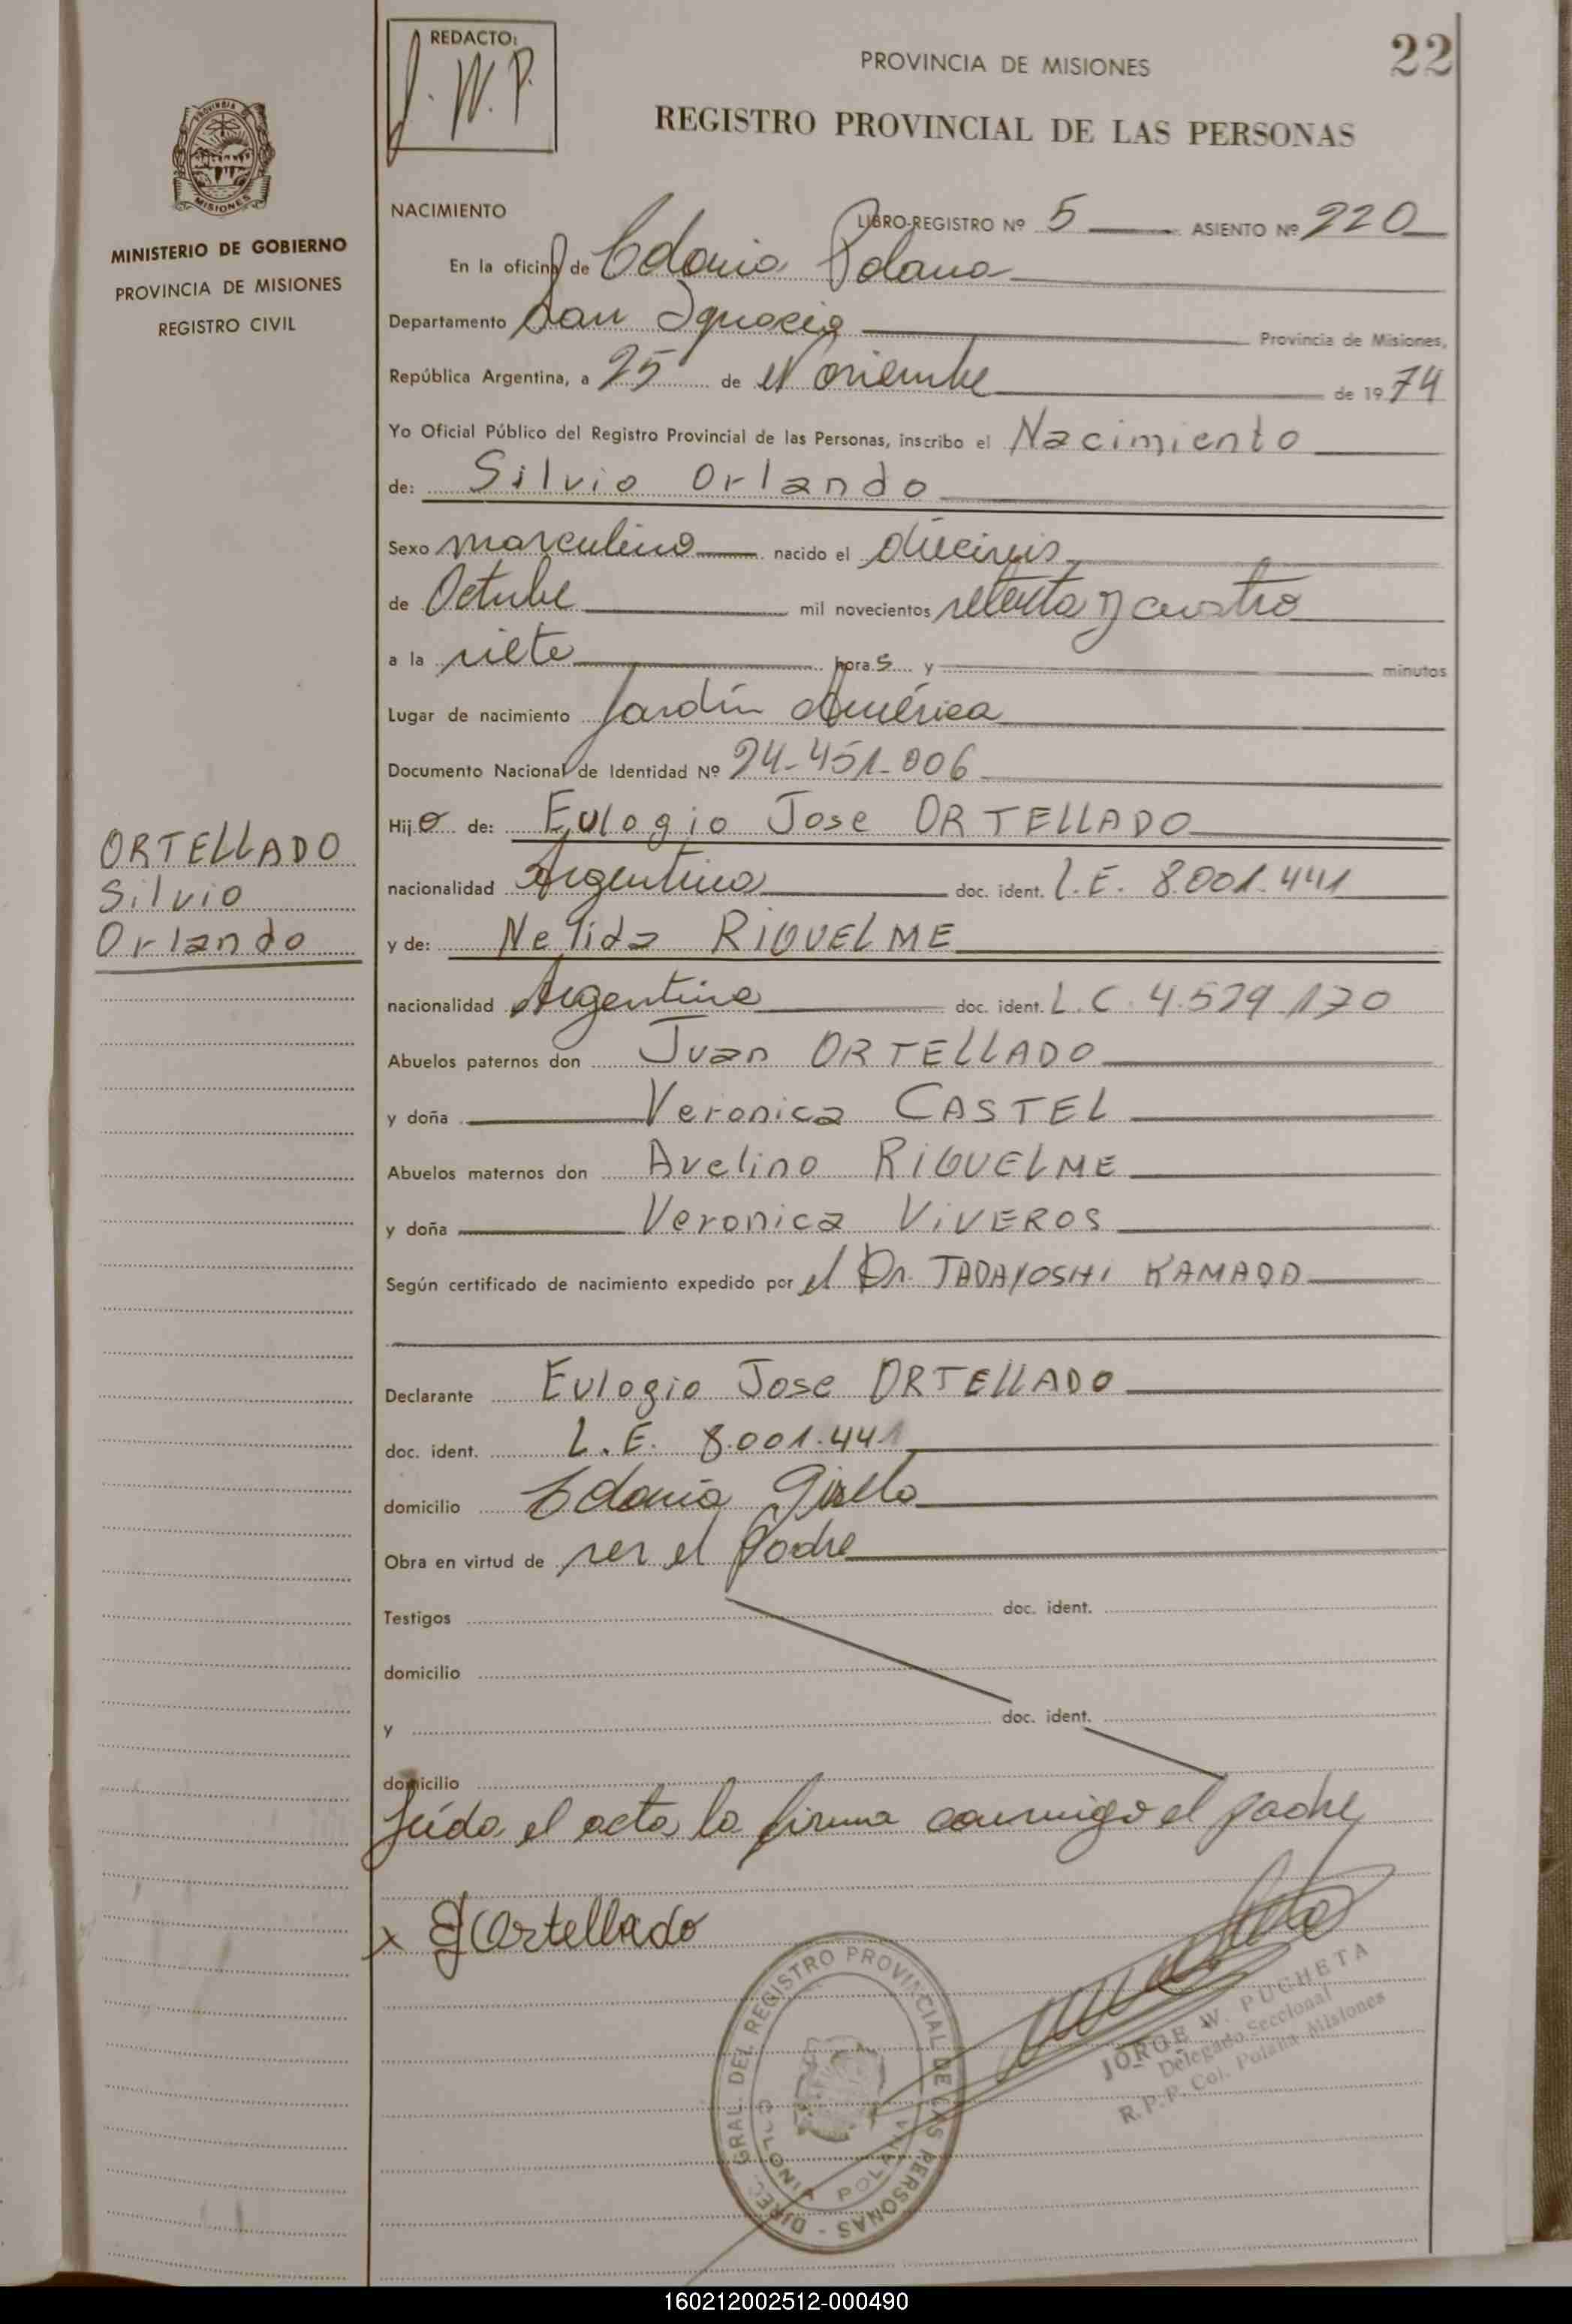 REDACTO:
J. W. P.
PROVINCIA DE MISIONES
22
REGISTRO PROVINCIAL DE LAS PERSONAS
PROVINCIA
MISIONES
MINISTERIO DE GOBIERNO
PROVINCIA DE MISIONES
REGISTRO CIVIL
NACIMIENTO
LIBRO-REGISTRO Nº 5 ASIENTO Nº 220
En la oficina de Colonia Polana
Departamento San Ignacio Provincia de Misiones,
República Argentina, a 25 de Noviembre de 1974
Yo Oficial Público del Registro Provincial de las Personas, inscribo el Nacimiento
de: Silvio Orlando
Sexo masculino nacido el dieciseis
de Octubre mil novecientos setenta y cuatro
a la siete hora s y minutos
Lugar de nacimiento Jardín América
Documento Nacional de Identidad Nº 24-451-006
Hijo de: Eulogio Jose ORTELLADO
nacionalidad Argentina doc. ident. L.E. 8.001.441
y de: Nelida RIQUELME
nacionalidad Argentina doc. ident. L.C. 4.529.170
Abuelos paternos don Juan ORTELLADO
y doña Veronica CASTEL
Abuelos maternos don Avelino RIQUELME
y doña Veronica VIVEROS
Según certificado de nacimiento expedido por el Dr. TADAYOSHI KAMADA
Declarante Eulogio Jose ORTELLADO
doc. ident. L.E. 8.001.441
domicilio Colonia Gisela
Obra en virtud de ser el Padre
Testigos doc. ident.
domicilio
y doc. ident.
domicilio
Leída el acta la firma conmigo el padre
x EJOrtellado
ORTELLADO
Silvio
Orlando
DIREC. GRAL. DEL REGISTRO PROVINCIAL DE LAS PERSONAS -
COLONIA POLANA
JORGE W. PUCHETA
Delegado Seccional
R.P.P. Col. Polana Misiones
160212002512-000490